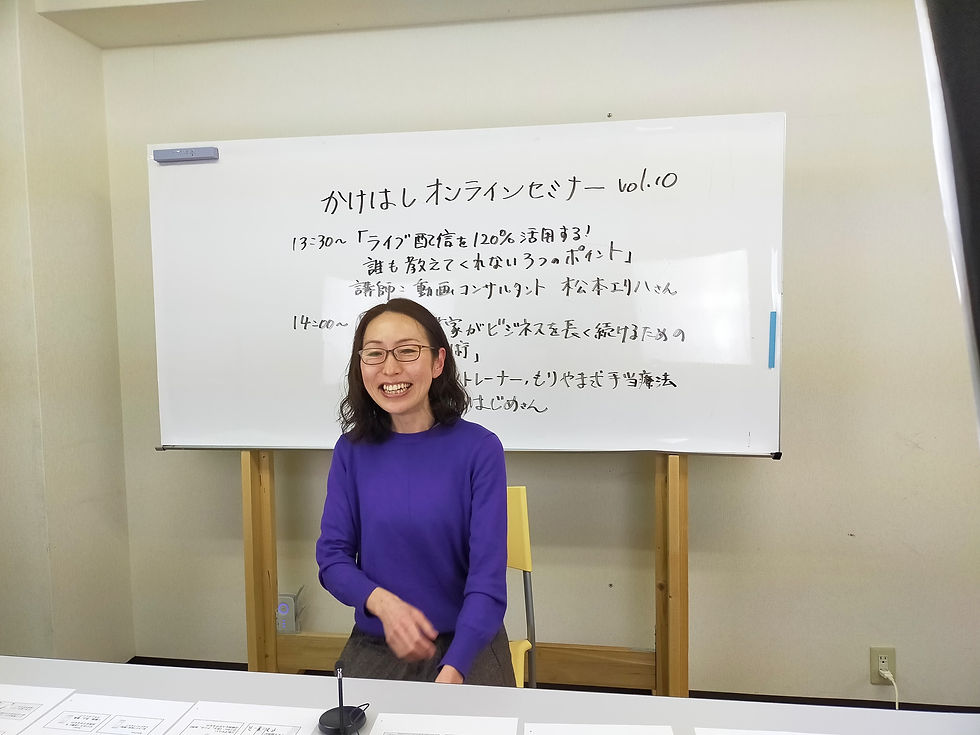 かけはし オンラインセミナー vol.10
13:30～「ライブ配信を120%活用する!
誰も教えてくれない3つのポイント」
講師:動画コンサルタント 松本エリハさん
14:00～
家がビジネスを長く続けるための
術」
トレーナー,もりやま式手当療法
はじめさん